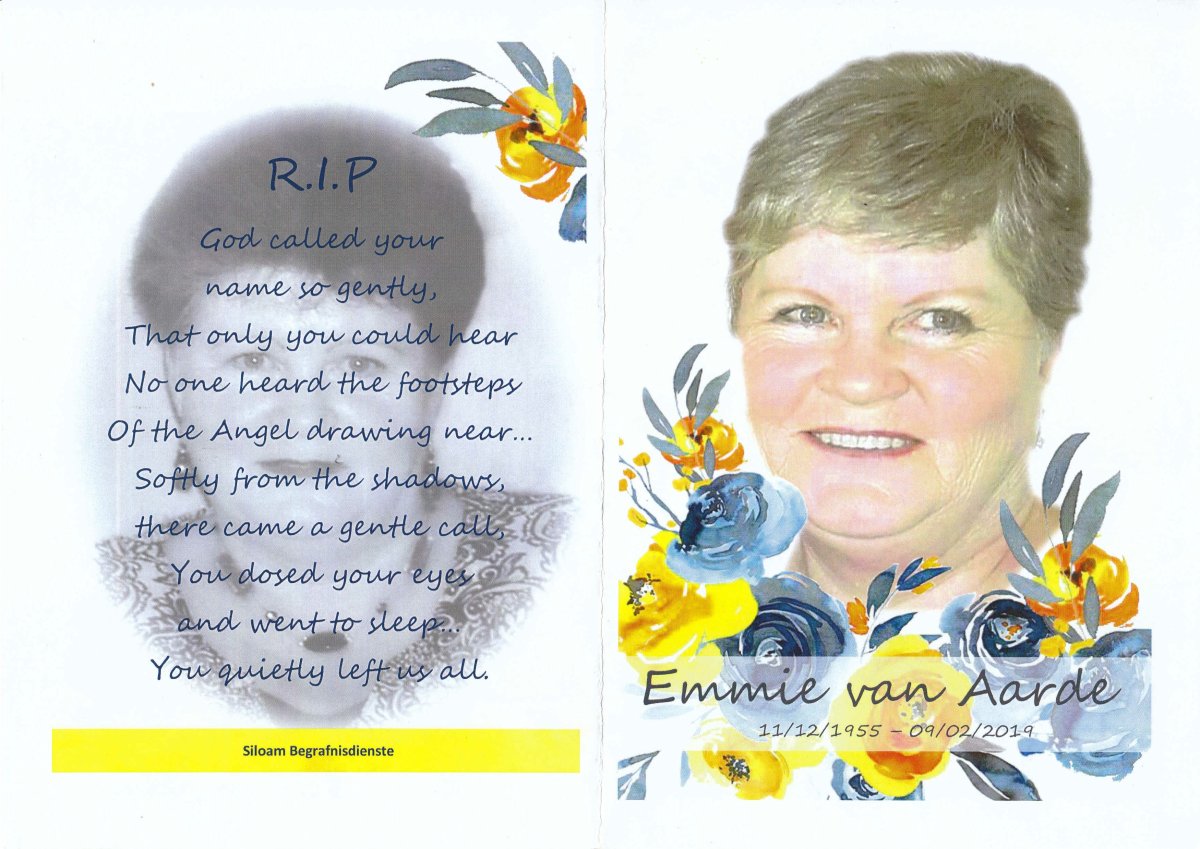 R.I.P
God called your
name so gently,
That only you could hear
No one heard the footsteps
Of the Angel drawing near...
Softly from the shadows,
there came a gentle call,
You dosed your eyes
and went to sleep...
You quietly left us all.
Siloam Begrafnisdienste
Emmie van Aarde
11/12/1955 – 09/02/2019